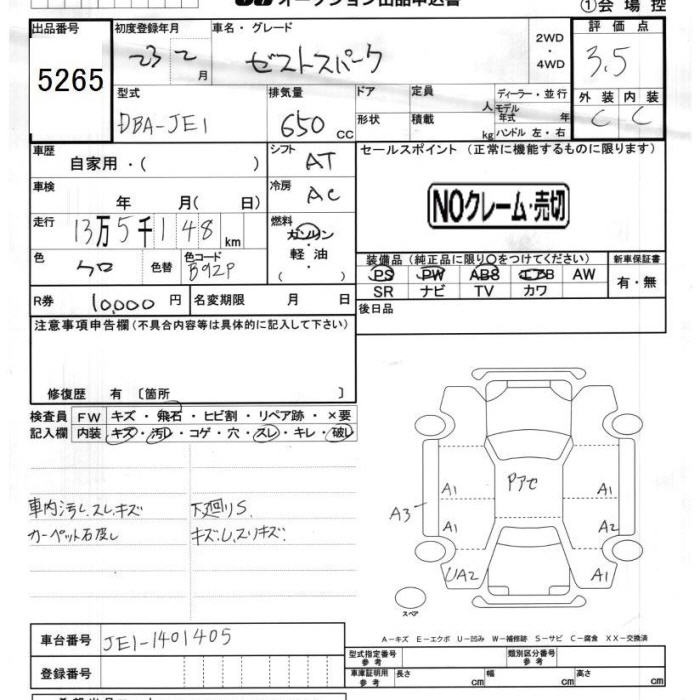 オークション出品申込書
①会場控
出品番号 初度登録年月 車名・グレード 評価点
5265 23 2 月 ゼストスパーク 2WD・4WD 3.5
型式 排気量 ドア 定員 人 ディーラー・並行 外装 内装
DBA-JE1 650 cc 形状 積載 kg モデル年式 年 ハンドル 左・右 C C
車歴 自家用・( ) シフト AT セールスポイント (正常に機能するものに限ります)
車検 年 月( 日) 冷房 AC
NOクレーム・売切
走行 13万5千148km 燃料 ガソリン・軽油・( )
色 クロ 色替 色コード B92P
装備品(純正品に限り○をつけてください) 新車保証書
PS PW ABS エアB AW 有・無
SR ナビ TV カワ
R券 10,000 円 名変期限 月 日 後日品
注意事項申告欄(不具合内容等は具体的に記入して下さい)
修復歴 有 〔箇所 〕
検査員 FW キズ・飛石・ヒビ割・リペア跡・×要
記入欄 内装 キズ・汚レ・コゲ・穴・スレ・キレ・破レ
車内汚レ、スレ、キズ 下廻りS.
A3
A1
A1
A1
A2
UA2
A1
スペア
A-キズ E-エクボ U-凹み W-補修跡 S-サビ C-腐食 XX-交換済
車台番号 JE1-1401405
型式指定番号 参考 類別区分番号 参考
登録番号
車庫証明用 参考 長さ cm 幅 cm 高さ cm